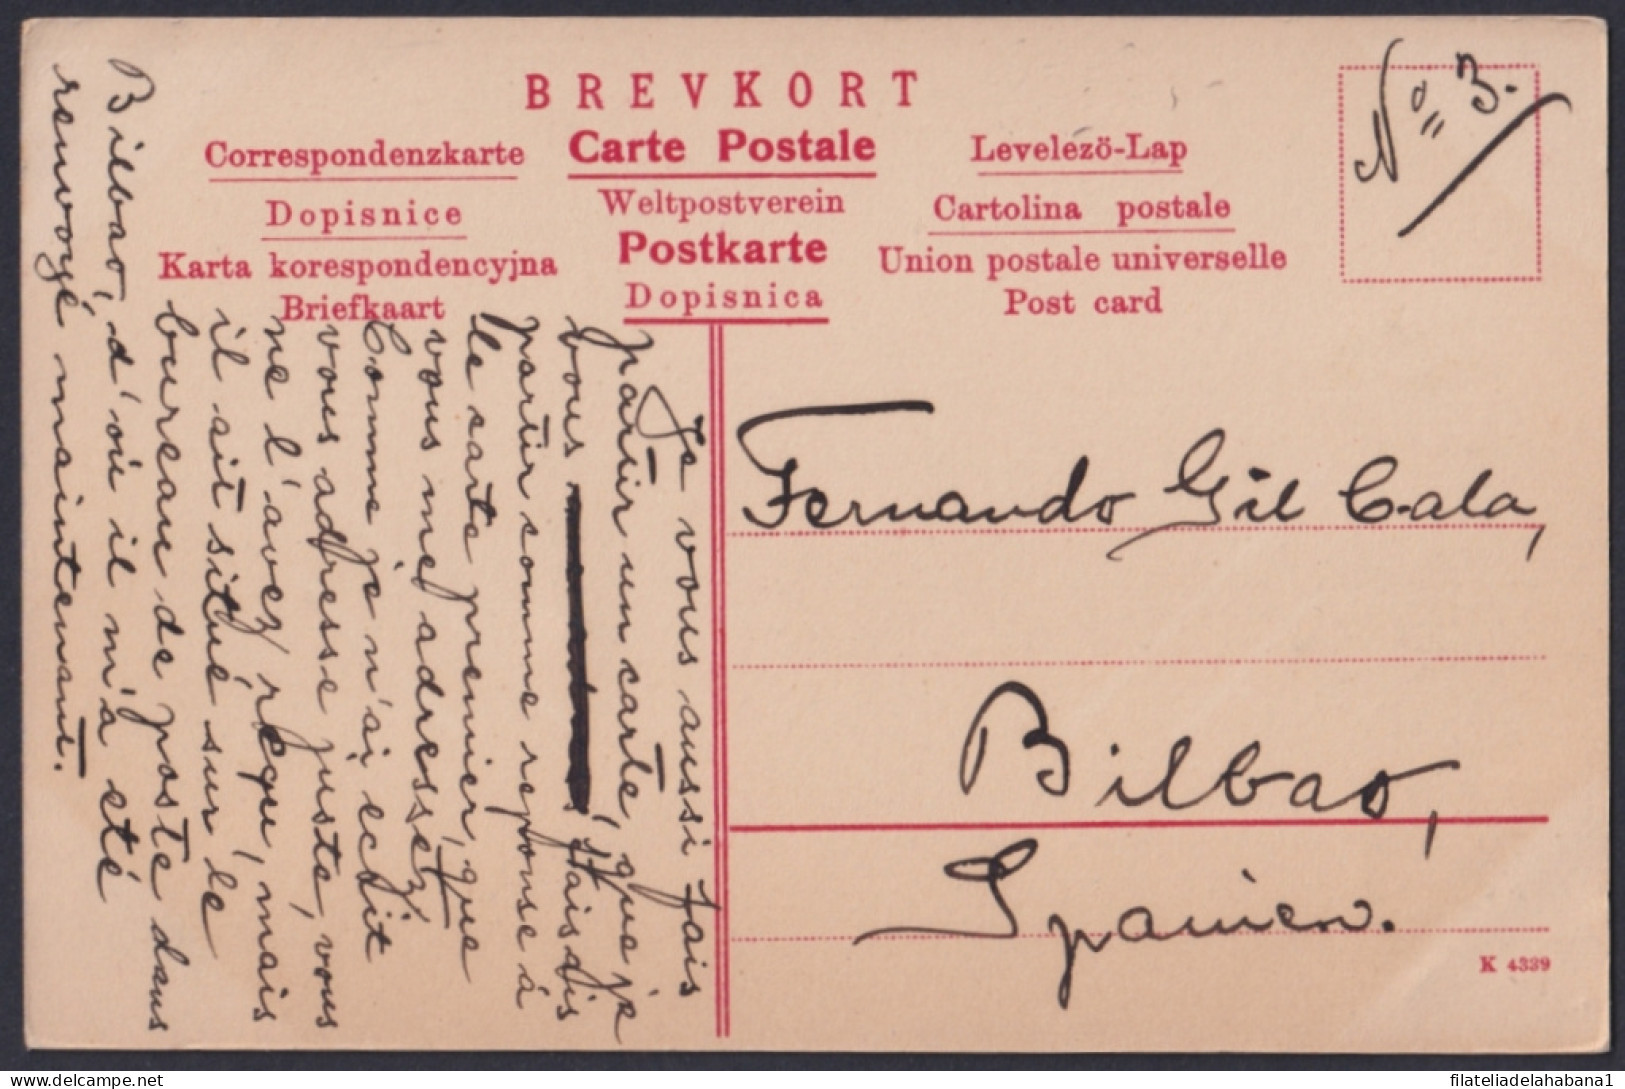 BREVKORT
Correspondenzkarte
Carte Postale
Levelézö-Lap
Dopisnice
Weltpostverein
Cartolina postale
Karta korespondencyjna
Postkarte
Union postale universelle
Briefkaart
Dopisnica
Post card
Nº 3.
Je vous aussi fais
partir un carte, que je
vous
partir comme reponse à
le carte premier, que
vous me adressez.
Comme je n'ai ecrit
vous adresse juste, vous
ne l'avez reçu, mais
il sit situé sur le
bureau de poste dans
Bilbao, d'où il m'a eté
renvoyé maintenant.
Fernando Gil Cala,
Bilbao,
Spanien.
K 4339
www.delcampe.net
filateliadelahabana1